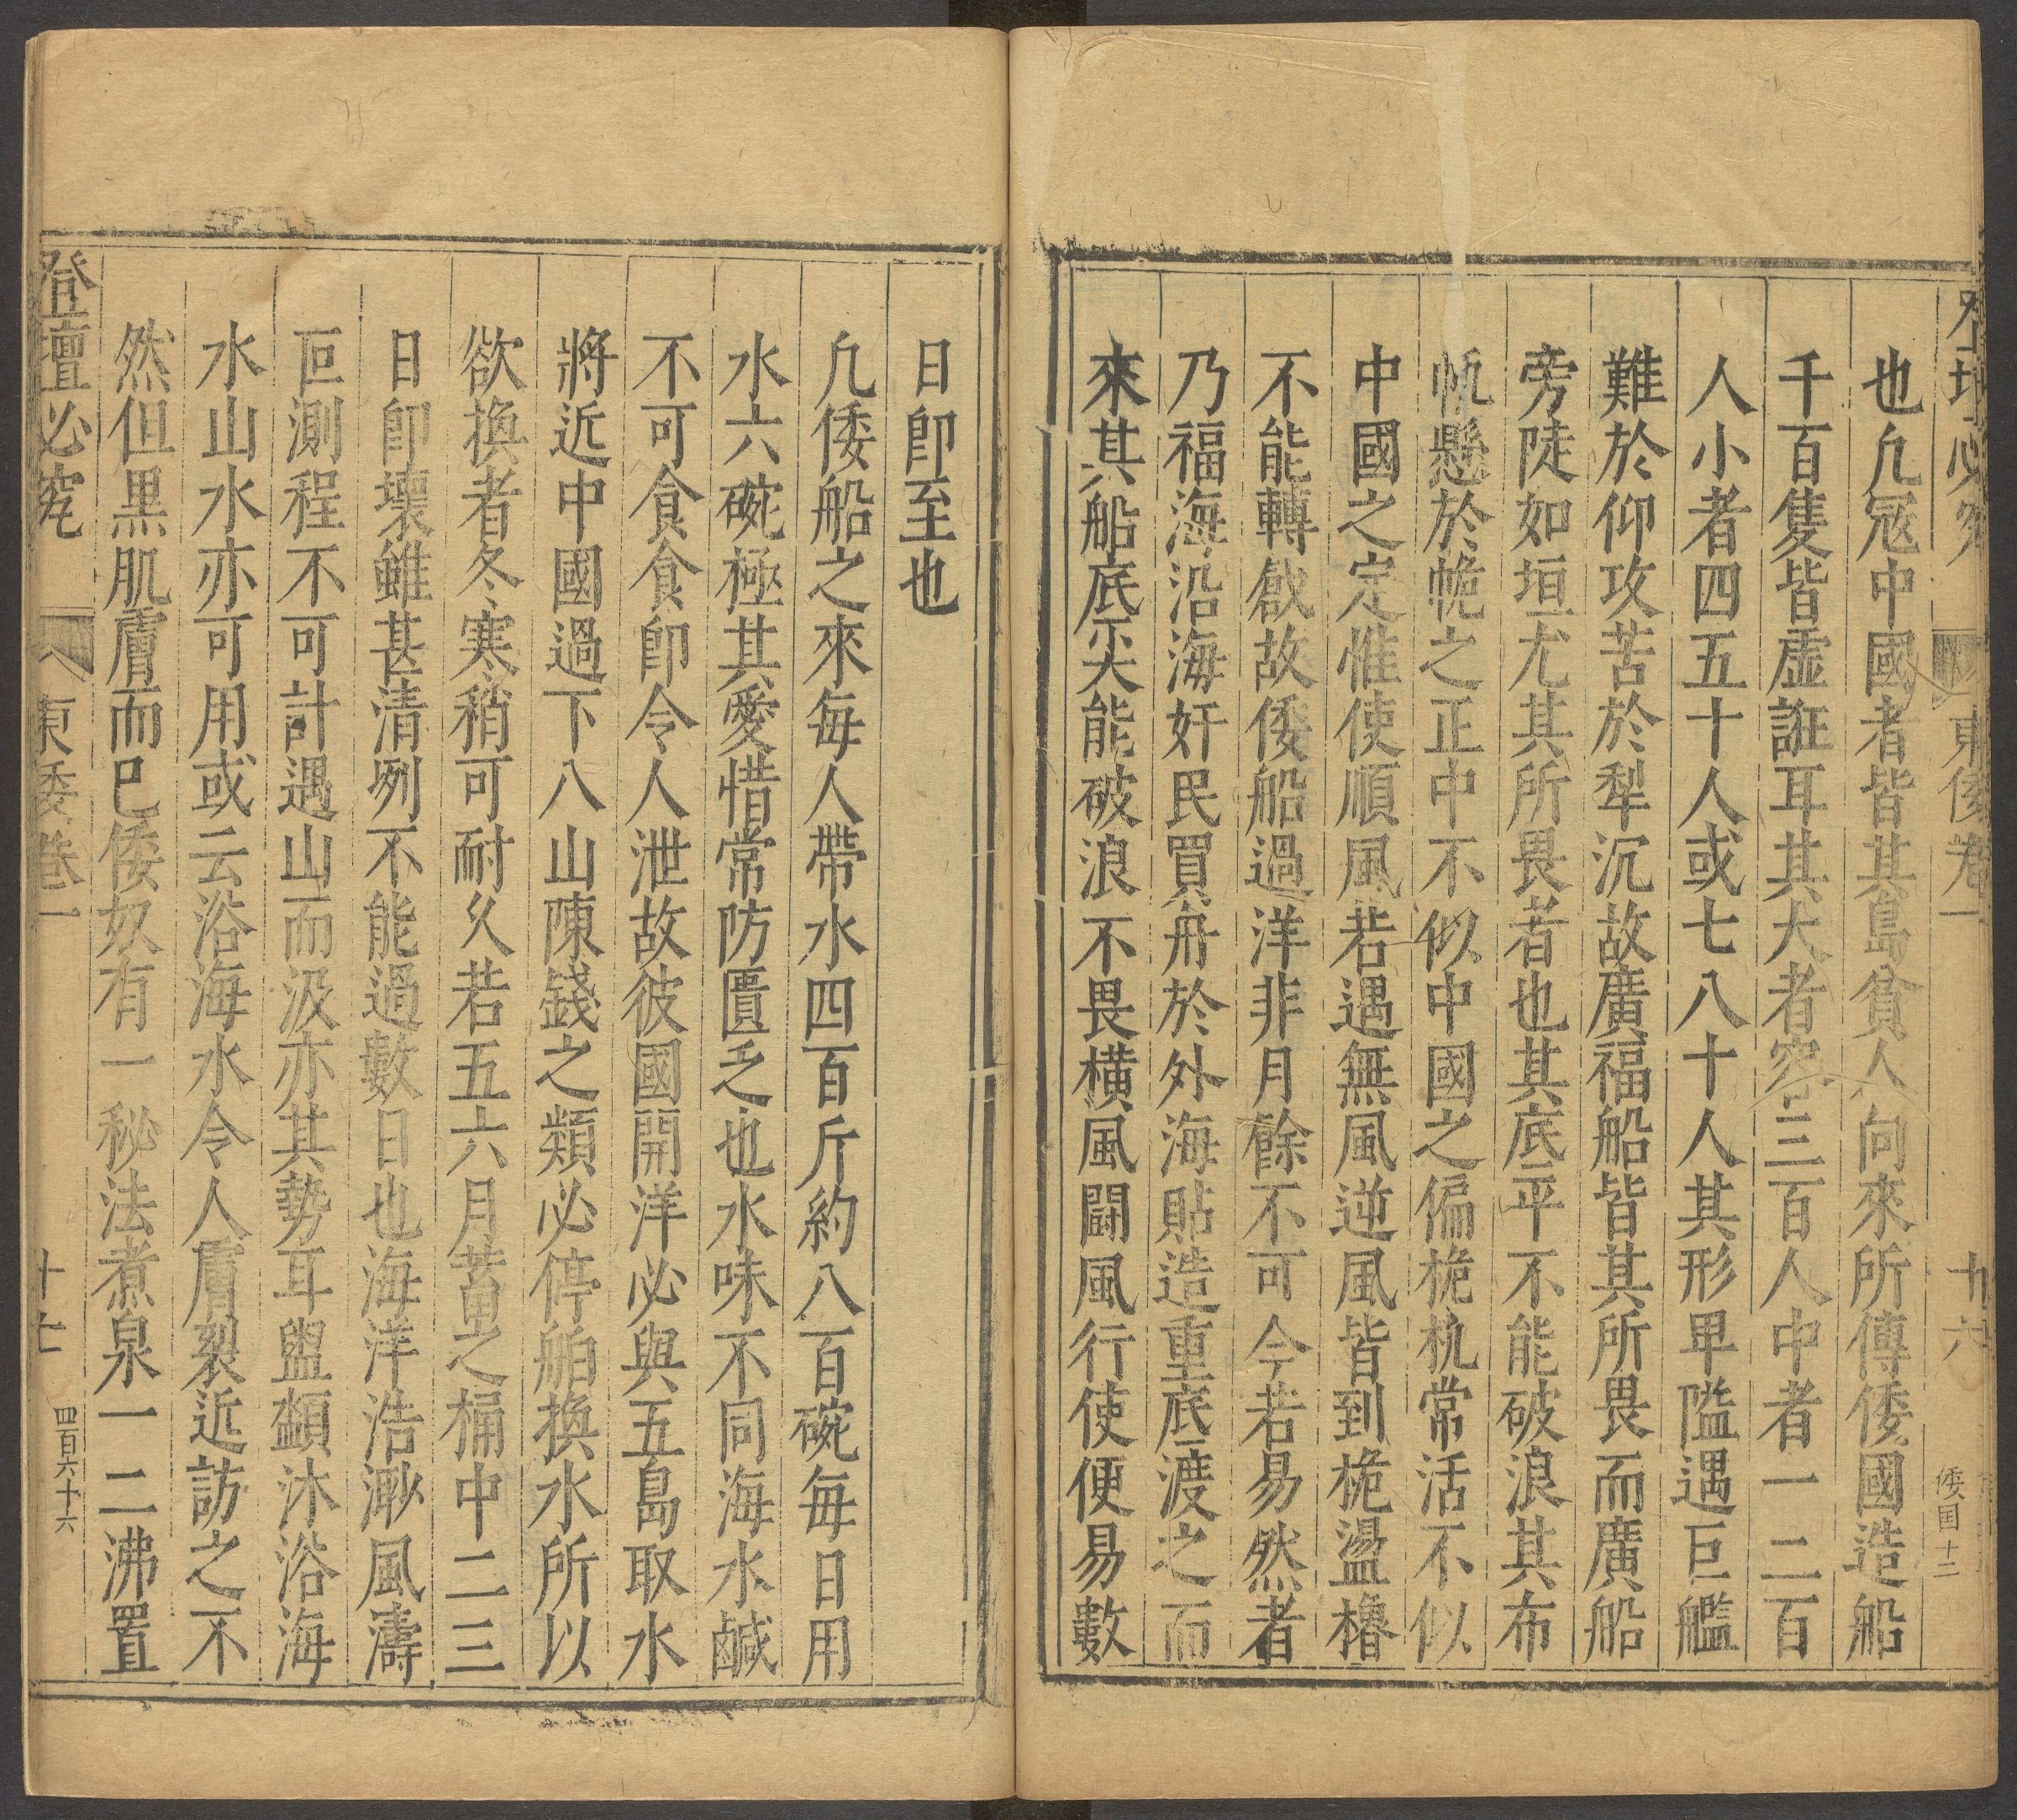 東倭卷一
十六
倭国十二
也凢冦中國者皆其島貧人向來所傳倭國造船
千百隻皆虚誑耳其大者容三百人中者一二百
人小者四五十人或七八十人其形卑隘遇巨艦
難於仰攻苦於犁沉故廣福船皆其所畏而廣船
旁陡如垣尤其所畏者也其底平不能破浪其布
帆懸於桅之正中不似中國之偏桅機常活不似
中國之定惟使順風若遇無風逆風皆倒桅盪櫓
不能轉戧故倭船過洋非月餘不可今若易然者
乃福海沿海奸民買舟於外海貼造重底渡之而
來其船底尖能破浪不畏横風鬭風行使便易數
日卽至也
凢倭船之來每人帶水四百斤約八百碗每日用
水六碗極其愛惜常防匱乏也水味不同海水鹹
不可食食卽令人泄故彼國開洋必與五島取水
將近中國過下八山陳錢之類必停舶換水所以
欲換者冬寒稍可耐久若五六月蓄之桶中二三
日卽壞雖甚清冽不能過數日也海洋浩渺風濤
叵測程不可計遇山而汲亦其勢耳盥頮沐浴海
水山水亦可用或云浴海水令人膚裂近訪之不
然但黒肌膚而已倭奴有一秘法煮泉一二沸置
登壇必究
東倭卷一
十七
四百六十六